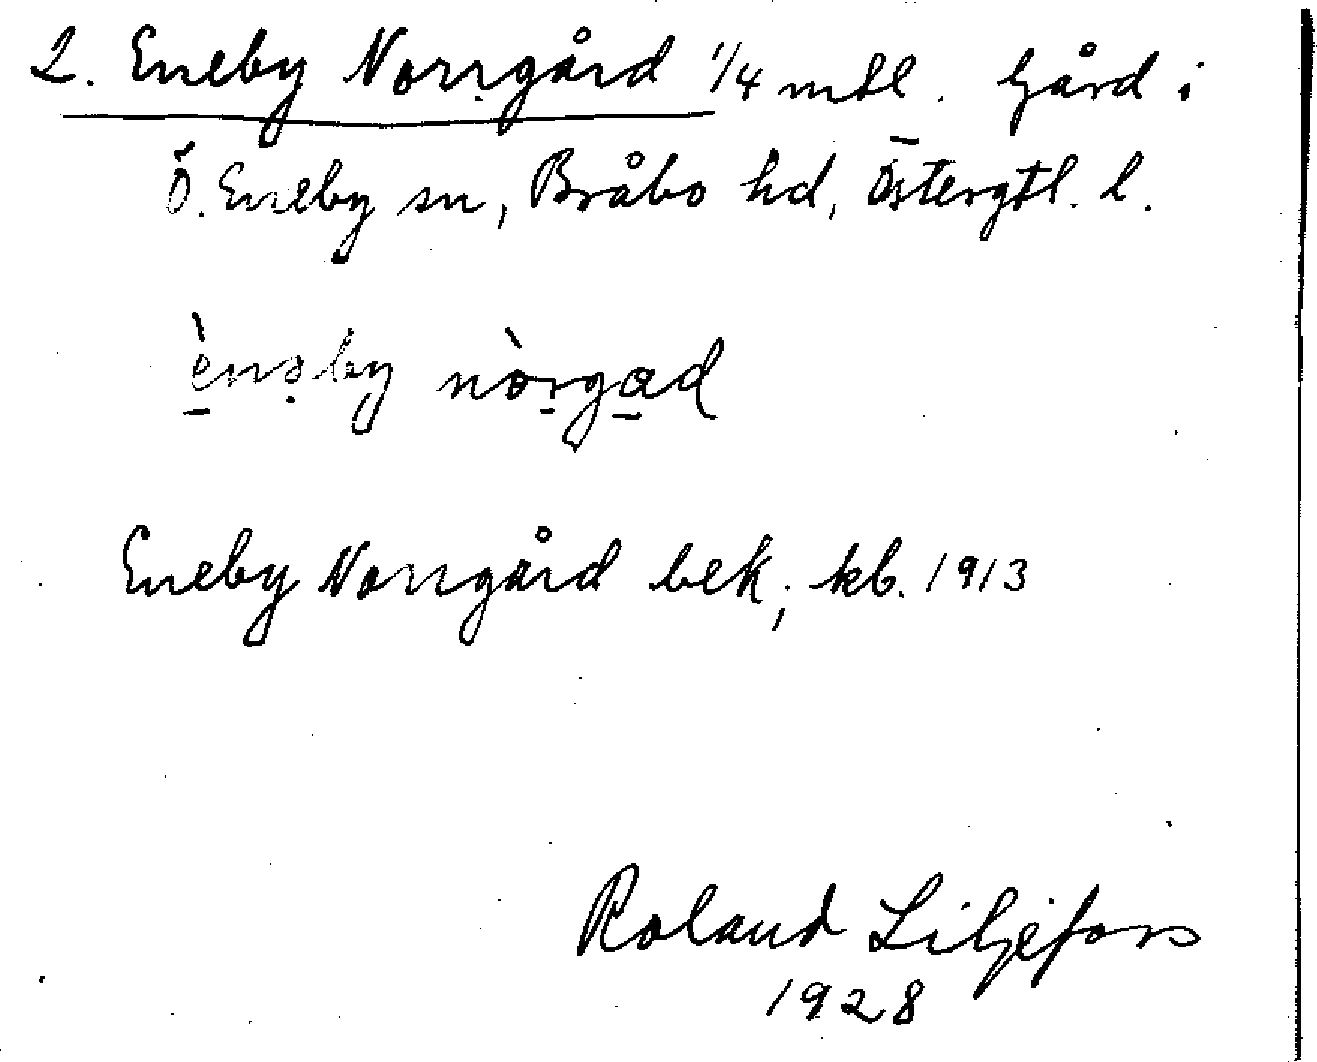 2. Eneby Norrgård 1/4 mtl. Gård i
Ö. Eneby sn, Bråbo hd, Östergtl. l.
ènəby nòrgad
Eneby Norrgård bek; kb. 1913
Roland Liljefors
1928